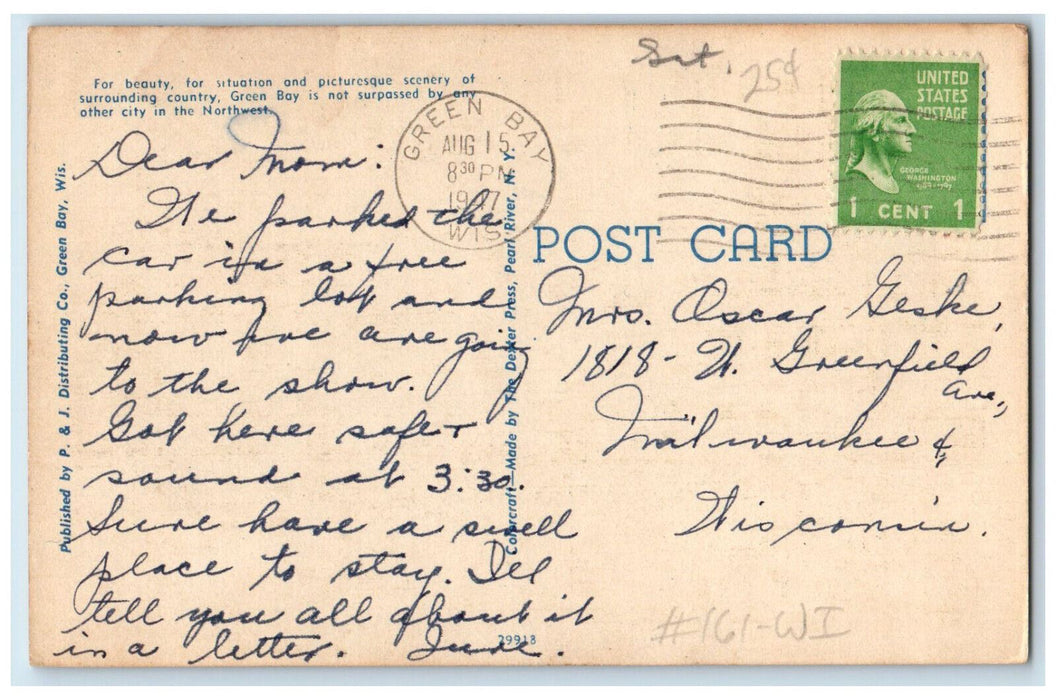 For beauty, for situation and picturesque scenery of
surrounding country, Green Bay is not surpassed by any
other city in the Northwest.
Dear Mom:
We parked the
car in a free
parking lot and
now we are going
to the show.
Got here safe +
sound at 3:30.
Sure have a swell
place to stay. I'll
tell you all about it
in a letter. June.
Published by P. & J. Distributing Co., Green Bay, Wis.
Colorcraft—Made by The Dexter Press, Pearl River, N. Y.
29918
GREEN BAY
AUG 15
8 30 PM
WIS
Sat.
25¢
UNITED
STATES
POSTAGE
GEORGE
WASHINGTON
1789-1797
1 CENT 1
POST CARD
Mrs. Oscar Geske,
1818- W. Greenfield
Ave.,
Milwaukee 4,
Wisconsin.
#161-WI